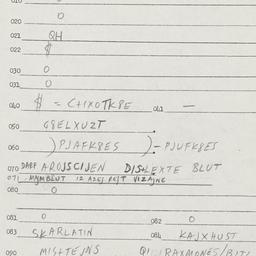 010
020 0
021 QH
022 $
030 0
031 0
040 $ = C+IXOTK8E 041 —
050 G8ELXUZT
060 )PJAFK8ES )-PJUFK8ES
070 DABF AROJSCIJEN DISLEXTE BLUT
071 MJMBLUT IZ AZEJ REJT VIZAJNE
080 0
081 0 082 0
083 SKARLATIN 084 KAJXHUST
090 MIS+TEJNS QI RAXMONES/BITI